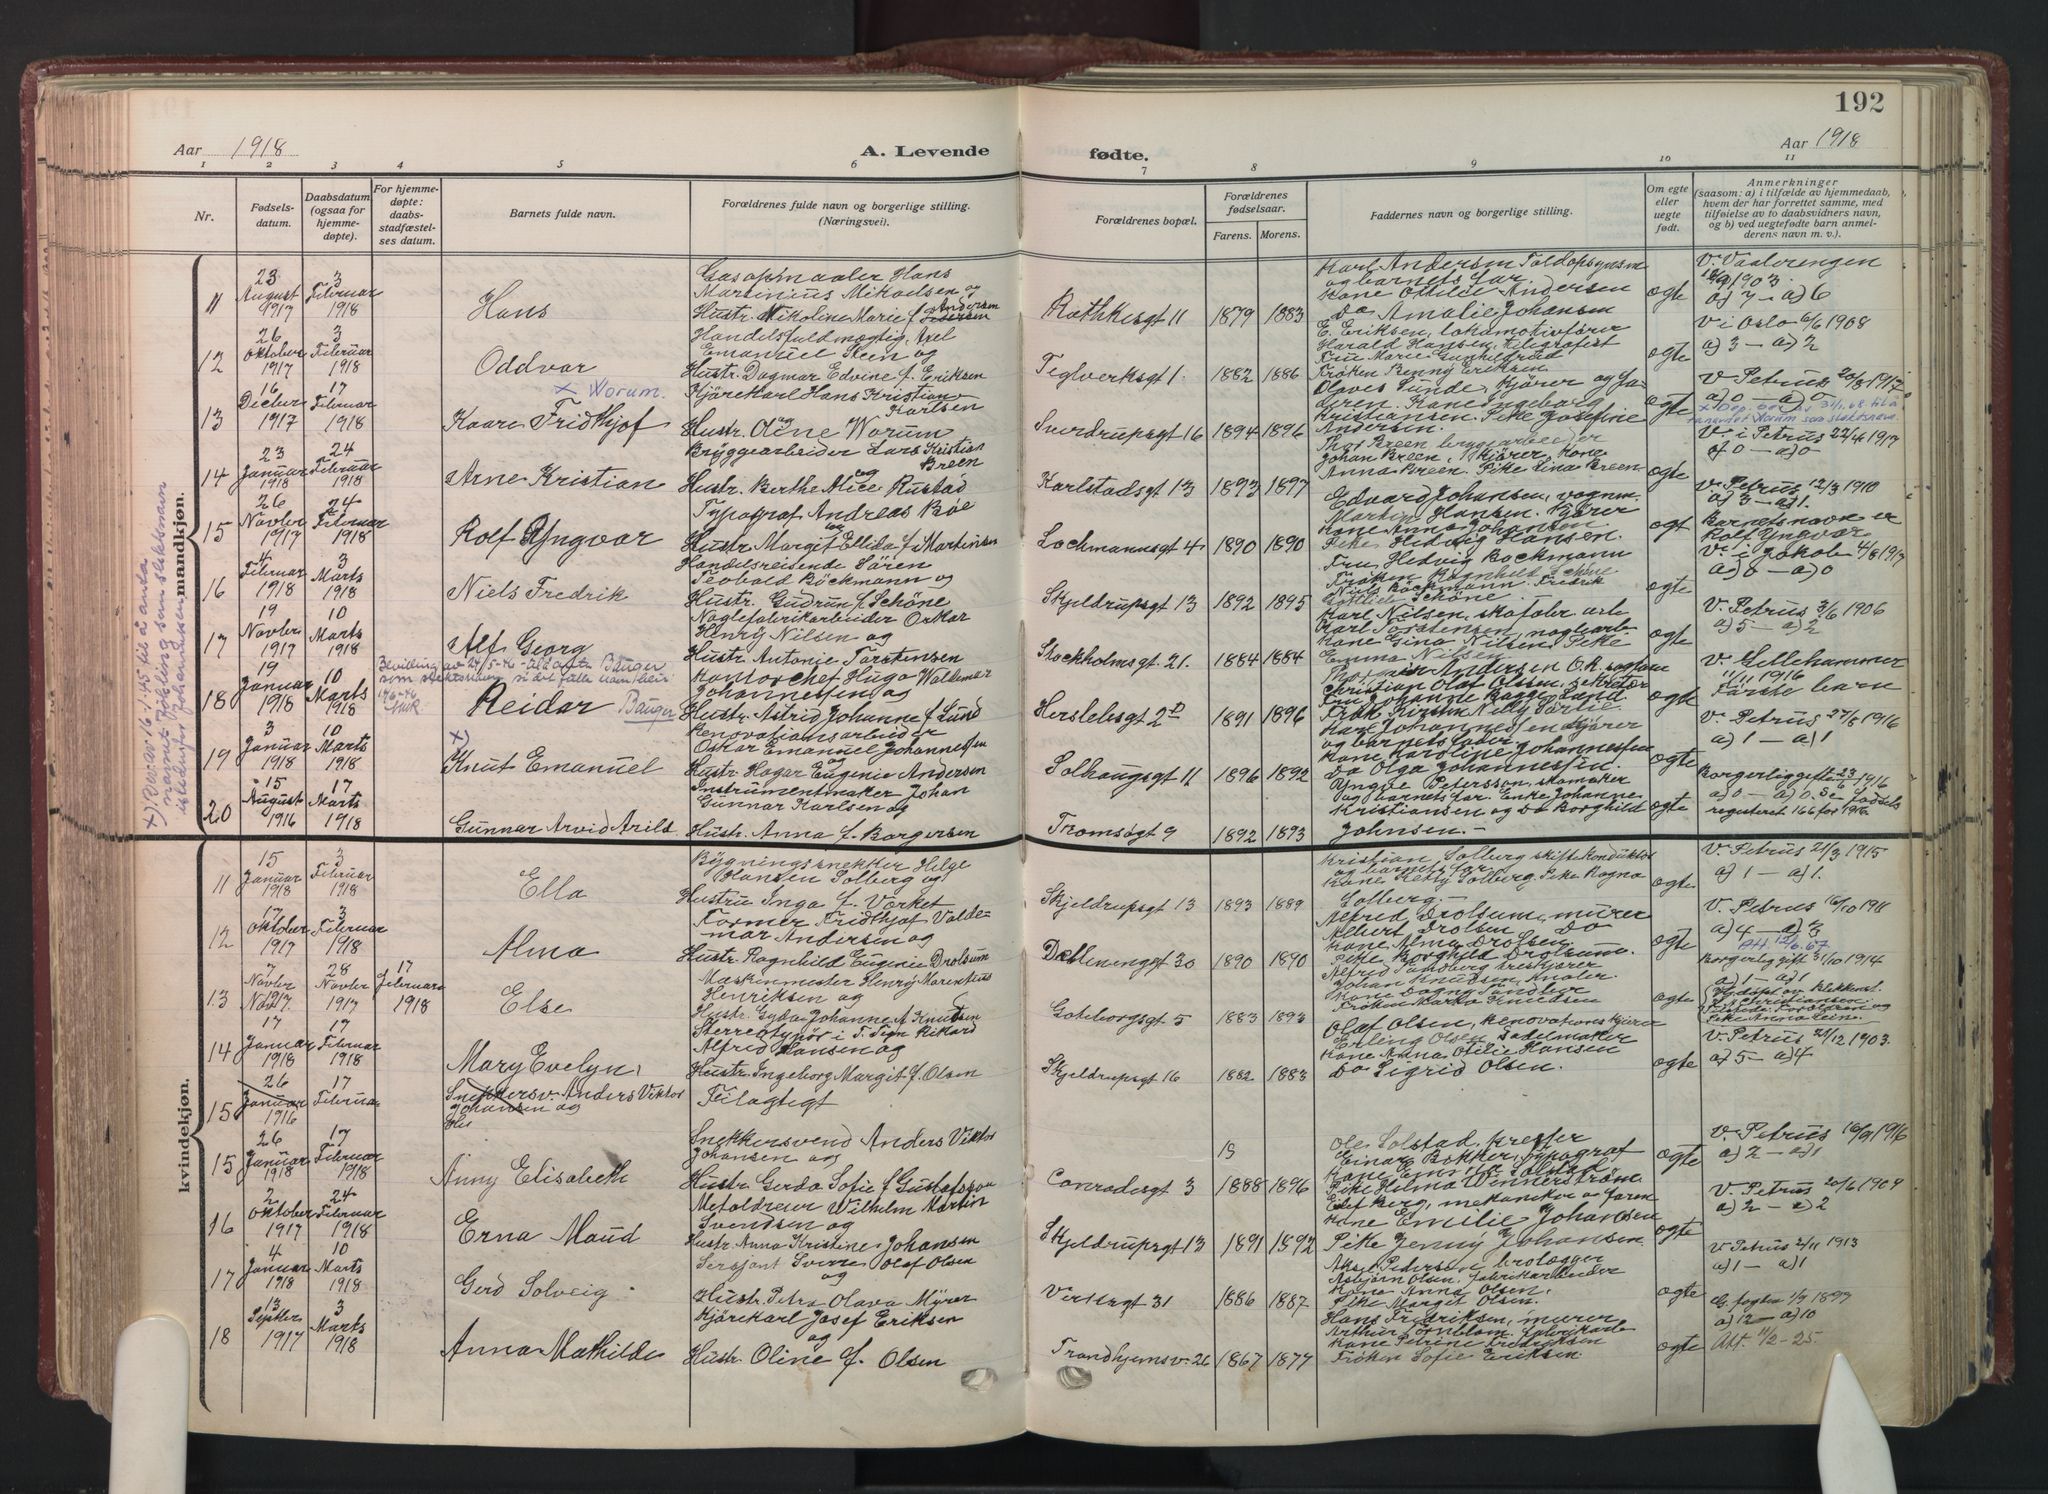 192
Aar 1918
A. Levende
fødte.
Aar 1918
1 2 3 4 5 6 7 8 9 10 11
Nr.
Fødsels-
datum.
Daabsdatum
(ogsaa for
hjemme-
døpte).
For hjemme-
døpte:
daabs-
stadfæstel-
ses datum.
Barnets fulde navn.
Forældrenes fulde navn og borgerlige stilling.
(Næringsvei).
Forældrenes bopæl.
Forældrenes
fødselsaar.
Farens. Morens.
Faddernes navn og borgerlige stilling.
Om egte
eller
uegte
født.
Anmerkninger
(saasom: a) i tilfælde av hjemmedaab,
hvem der har forrettet samme, med
tilføielse av to daabsvidners navn,
og b) ved uegtefødte barn anmel-
derens navn m. v.).
mandkjøn.
11
23
August
1917
3
Februar
1918
Hans
Martinius Mikaelsen og
Hustr. Nikoline Marie f.
Andersen
Rathkesgt 11
1879 1883
Karl Andersen Toldopsynsm
og barnets far
Kone Ottilie Andersen
Do Amalie Johansen
egte
V. Vaalerengen
1903.
a) 7 – a) 6
12
26
Oktober
1917
3
Februar
1918
Oddvar
Handelsfuldmægtig Axel
Emanuel Steen og
Hustr. Dagmar Edvine f. Eriksen
Teglverksgt 1.
1882 1886
E. Eriksen, lokomotivfører
Harald Hansen, telegrafist
Fru Marie Gunhildrud
Frøken Benny Eriksen
egte
V i Oslo 6/6 1908
a) 3 – a) 2
13
16
Decbr
1917
17
Februar
1918
x Worum.
Kaare Fridthjof
Kjørekarl Hans Kristian
Karlsen
og
Hustr. Oline Worum
Sverdrupsgt 16
1894 1896
Olaves Sunde, Kjører og fa
eren. Kone Ingeborg
Kristiansen. Pike Josefine
Andersen.
egte
V Petrus 20/8 1917
a) 0 – a) 0
14
23
Januar
1918
24
Februar
1918
Arne Kristian
Bryggearbeider Lars Kristian
Breen
og
Hustr. Berthe Alice Rustad
Karlstadsgt 13
1893 1897
Thor Breen bryggearbeider
Johan Breen, Kjører, Kone
Anna Breen. Pike Lina Breen
egte
V. i Petrus 22/4 1917
a) 0 – a) 0
15
26
Novbr
1917
24
Februar
1918
Rolf Yngvar
Typograf Andreas Bøe
og
Hustr. Margit Ellida f. Martinsen
Lochmannsgt 4
1890 1890
Edvard Johansen, vognm.
Martin Hansen. Kjører
Kone Anna Johansen.
Pike Hedvig Hansen
egt
V. Petrus 12/3 1910
a) 3 – a) 1.
Barnets navn er
Rolf Yngvar
16
4
Februar
1918
3
Marts
1918
Niels Fredrik
Handelsreisende Sören
Teobald Böckmann og
Hustr. Gudrun f. Schöne
Skjeldrupsgt 13
1892 1895
Fru Hedvig Bockmann
Frøken Ragnhild Schöne
Niels Böckmann Fredrik
Gottlieb Schöne
egte
V. i Jakob 4/8 1917
a) 0 – a) 0
17
19
Novbr
1917
10
Marts
1918
Alf Georg
Naglefabrikarbeider Oskar
Henry Nilsen og
Hustr. Antonie Torstensen
Stockholmsgt 21.
1884 1884
Karl Nilsen, skofabr. arb
Karl Torstensen, naglearb.
Kone Gina Nilsen Pike
Emma Nilsen
egte
V. Petrus 3/6 1906
a) 5 – a) 2
18
19
Januar
1918
10
Marts
1918
Reidar Bauger
Kontorchef Hugo Waldemar
Johannessen og
Hustr. Astrid Johanne f. Lund
Herslebsgt 2D
1891 1896
Christian Olaf Olsen, sekretær
egte
V. Lillehammer
1916
Første barn
19
3
Januar
1918
10
Marts
1918
x)
Knut Emanuel
Renovationsarbeider
Oskar Emanuel Johannessen
og
Hustr. Hagar Eugenie Andersen
Solhaugsgt 11
1896 1892
Kare Johannessen Kjører
og barnets fader
Kone Karoline Johannessen
Do Olga Johannessen.
egte
V. Petrus 27/8 1916
a) 1 – a) 1
20
15
August
1916
17
Marts
1918
Gunnar Arvid Arild
Instrumentmaker Johan
Gunnar Karlsen og
Hustr. Anna f. Borgersen
Tromsøgt 9
1892 1893
Yngve Petersson, skomaker
og barnets far. Enke Johanne
Kristiansen og Do Borghild
Johnsen. –
egte
Borgerlig gift 23/6 1916
a) 0 – a) 0. Se fødsels
registeret 166 for 1916
kvindekjøn.
11
15
Januar
1918
3
Februar
1918
Ella
Bygningssnekker Helge
Olansen Solberg og
Hustru Inga f. Vorket
Skjeldrupsgt 13
1893 1889
Kristian Solberg skiftekonduktør
og barnets far
Kone Betty Solberg. Pike Ragna
Solberg. –
egte
V. Petrus 21/3 1915
a) 1 – a) 1.
12
17
Oktober
1917
3
Februar
1918
Alma
Former Fridthjof Valde-
mar Andersen og
Hustr. Ragnhild Eugenie Drolsum
Dælenenggt 30
1890 1890
Alfred Drolsum, murer
Albert Drolsen Do
Kone Alma Drolsen
Pike Borghild Drolsum.
egte
V. Petrus 10/10 1911
a) 4 – a) 3
13
7
Novbr
1917
28
Novbr
1917
17
Februar
1918
Else
Maskinmester Henry Marentius
Henriksen og
Hustr. Gyda Johanne A Knutsen
Goteborgsgt 5
1883 1893
Johan Knudsen, Snøler.
Kone Dagny Sandler
Frøken Marta Knudsen
egte
Borgerlig gift 31/10 1914
a) 1 – a) 1
14
17
Januar
1918
17
Februar
1918
Mary Evelyn.
Alfred Hansen og
Hustr. Ingeborg Margit f. Olsen
Skjeldrupsgt 16
1882 1883
Olaf Olsen, renovationskjører
Erling Olsen Sadelmaker
Kone Anna Otilie Hansen
Do Sigrid Olsen.
egte
V. Petrus 21/12 1903.
a) 5 – a) 4
15
26
Januar
1916
17
Februa
Snekkersv. Anders Viktor
Johansen og
Hus
Feilagtigt
15
26
Januar
1918
17
Februar
1918
Anny Elisabeth
Snekkersvend Anders Viktor
Johansen og
Hustr. Gerda Sofie f Gustafsson
Conradisgt 3
19
1888 1896
Ole Solstad, Kræfter
Einar Bekker, typograf
Kone Emma Solstad
Pike Helma Winnerström.
egte
V. Petrus 16/9 1916
a) 2 – a) 1
16
2
Oktober
1917
24
Februar
1918
Erna Maud
Metaldreier Wilhelm Martin
Svendsen og
Hustr. Anna Kristine Johansen
Skjeldrupsgt 13
1891 1892
Eilif Berg, mekaniker og faren
Kone Emilie Johansen
Pike Jenny Johansen.
egte
V. Petrus 20/6 1909
a) 2 – a) 2
17
4
Januar
1918
10
Marts
1918
Gerd Solveig
Sersjant Sverre Olaf Olsen
og
Hustr. Petra Olava Myrer
Verksgt 31
1886 1887
Aksel Pedersen brolægger
Asbjørn Olsen, fabrikarbeider
Kone Anna Olsen.
Pike Margit Olsen.
egte
V Petrus 2/11 1913
a) 1 – a) 1
18
13
Septbr
1917
3
Marts
1918
Anna Mathilde
Kjørekarl Josef Eriksen
og
Hustr. Oline f. Olsen
Trondhjemsv. 26
1867 1877
Hans Fredriksen, murer
Arthur Törnblom, fabrikarb.
Kone Petrine Fredriksen
Frøken Sofie Eriksen.
egte
1/9 1897
a) 12 – a) 10
Akt. 11/2 – 25